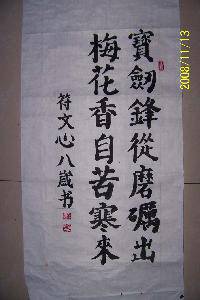 寶劍鋒從磨礪出
梅花香自苦寒來
符文心八歲书
2008/11/13